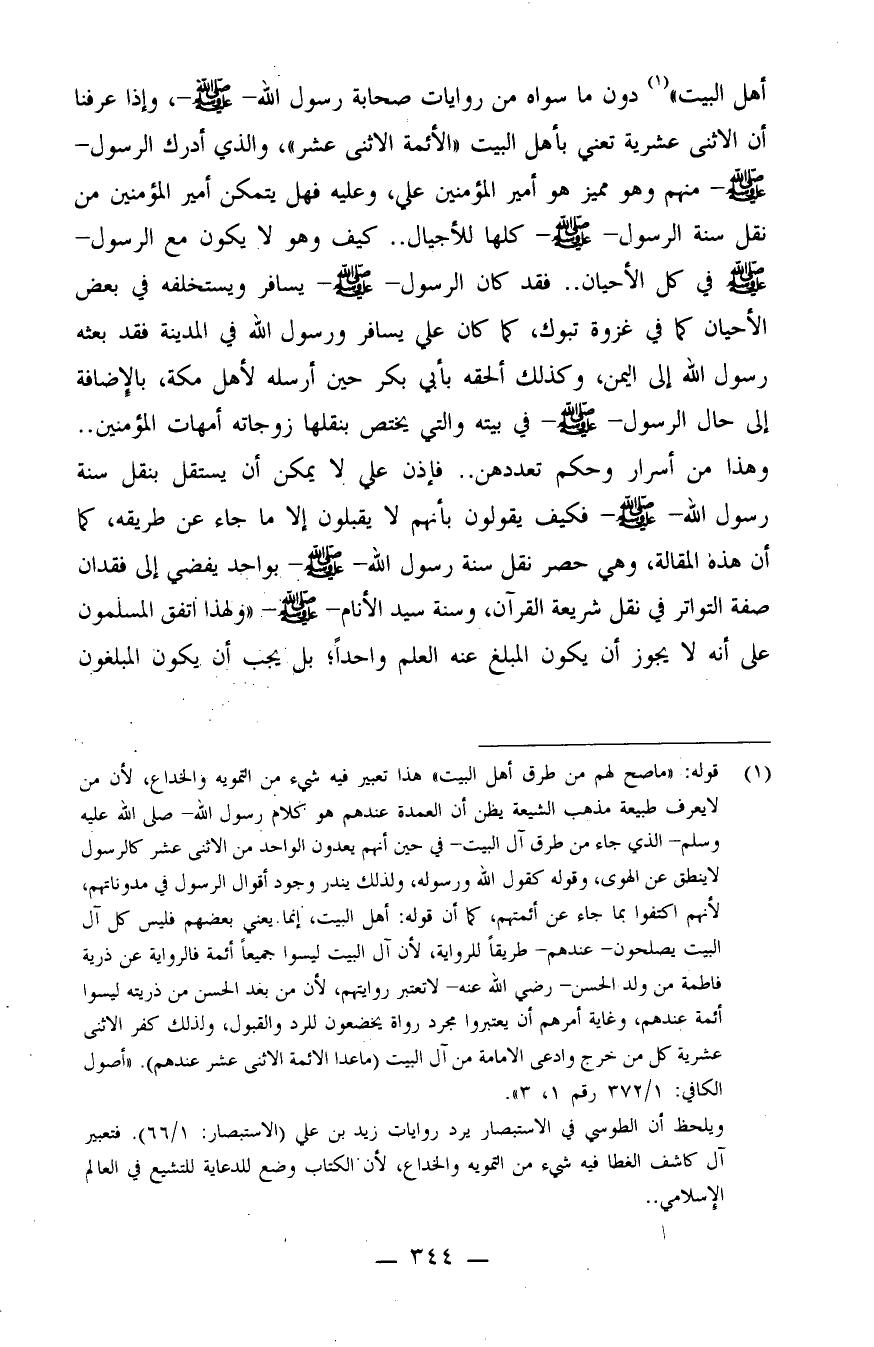 أهل البيت»(١) دون ما سواه من روايات صحابة رسول الله– ﷺ –، وإذا عرفنا
أن الاثنى عشرية تعني بأهل البيت «الأئمة الاثنى عشر»، والذي أدرك الرسول–
ﷺ – منهم وهو مميز هو أمير المؤمنين علي، وعليه فهل يتمكن أمير المؤمنين من
نقل سنة الرسول– ﷺ – كلها للأجيال.. كيف وهو لا يكون مع الرسول–
ﷺ في كل الأحيان.. فقد كان الرسول– ﷺ – يسافر ويستخلفه في بعض
الأحيان كما في غزوة تبوك، كما كان علي يسافر ورسول الله في المدينة فقد بعثه
رسول الله إلى اليمن، وكذلك ألحقه بأبي بكر حين أرسله لأهل مكة، بالإضافة
إلى حال الرسول– ﷺ – في بيته والتي يختص بنقلها زوجاته أمهات المؤمنين..
وهذا من أسرار وحكم تعددهن.. فإذن علي لا يمكن أن يستقل بنقل سنة
رسول الله– ﷺ – فكيف يقولون بأنهم لا يقبلون إلا ما جاء عن طريقه، كما
أن هذه المقالة، وهي حصر نقل سنة رسول الله– ﷺ – بواحد يفضي إلى فقدان
صفة التواتر في نقل شريعة القرآن، وسنة سيد الأنام– ﷺ – «ولهذا اتفق المسلمون
على أنه لا يجوز أن يكون المبلغ عنه العلم واحداً؛ بل يجب أن يكون المبلغون
(١) قوله: «ماصح لهم من طرق أهل البيت» هذا تعبير فيه شيء من التمويه والخداع، لأن من
لايعرف طبيعة مذهب الشيعة يظن أن العمدة عندهم هو كلام رسول الله– صلى الله عليه
وسلم– الذي جاء من طرق آل البيت– في حين أنهم يعدون الواحد من الاثنى عشر كالرسول
لاينطق عن الهوى، وقوله كقول الله ورسوله، ولذلك يندر وجود أقوال الرسول في مدوناتهم،
لأنهم اكتفوا بما جاء عن أئمتهم، كما أن قوله: أهل البيت، إنما يعني بعضهم فليس كل آل
البيت يصلحون– عندهم– طريقاً للرواية، لأن آل البيت ليسوا جميعاً أئمة فالرواية عن ذرية
فاطمة من ولد الحسن– رضي الله عنه– لاتعتبر روايتهم، لأن من بعد الحسن من ذريته ليسوا
أئمة عندهم، وغاية أمرهم أن يعتبروا مجرد رواة يخضعون للرد والقبول، ولذلك كفر الاثنى
عشرية كل من خرج وادعى الامامة من آل البيت (ماعدا الائمة الاثنى عشر عندهم). «أصول
الكافي: ٣٧٢/١ رقم ١، ٣».
ويلحظ أن الطوسي في الاستبصار يرد روايات زيد بن علي (الاستبصار: ٦٦/١). فتعبير
آل كاشف الغطا فيه شيء من التمويه والخداع، لأن الكتاب وضع للدعاية للتشيع في العالم
الإسلامي..
— ٣٤٤ —